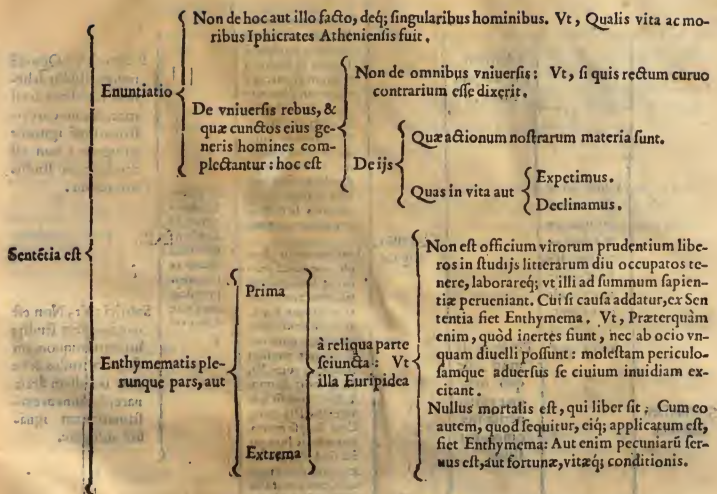 Non de hoc aut illo facto, deq; ſingularibus hominibus. Vt, Qualis vita ac mo-
ribus Iphicrates Athenienſis fuit.
Enuntiatio
De vniuerſis rebus, &
quæ cunctos eius ge-
neris homines com-
plectantur: hoc eſt
Non de omnibus vniuerſis: Vt, ſi quis rectum curuo
contrarium eſſe dixerit.
De ijs
Quæ actionum noſtrarum materia ſunt.
Quas in vita aut
Expetimus.
Declinamus.
Sentẽtia eſt
Enthymematis ple-
runque pars, aut
Prima
Extrema
à reliqua parte
ſeiuncta: Vt
illa Euripidea
Non eſt officium virorum prudentium libe-
ros in ſtudijs litterarum diu occupatos te-
nere, laborareq; vt illi ad ſummum ſapien-
tiæ perueniant. Cui ſi cauſa addatur, ex Sen
tentia fiet Enthymema. Vt, Præterquàm
enim, quòd inertes fiunt, nec ab ocio vn-
quam diuelli poſſunt: moleſtam periculo-
ſamque aduerſus ſe ciuium inuidiam ex-
citant.
Nullus mortalis eſt, qui liber ſit: Cum eo
autem, quod ſequitur, eiq; applicatum eſt,
fiet Enthymema: Aut enim pecuniarũ ſer-
uus eſt, aut fortunæ, vitæq; conditionis.